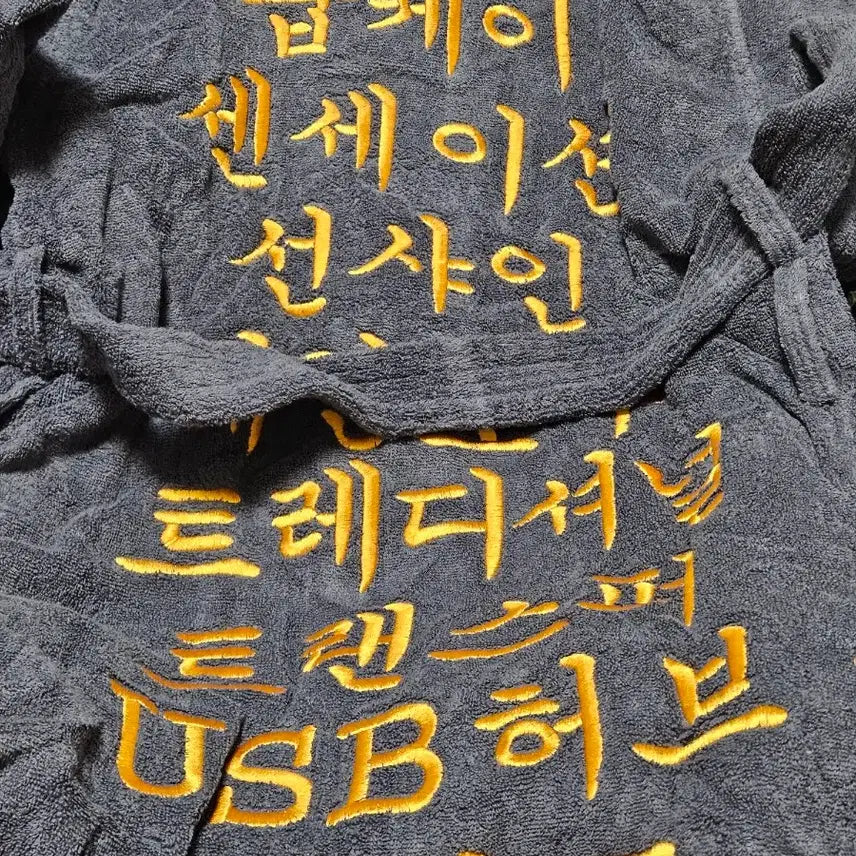 센세이션
선샤인
트레디셔널
트랜스퍼
USB허브